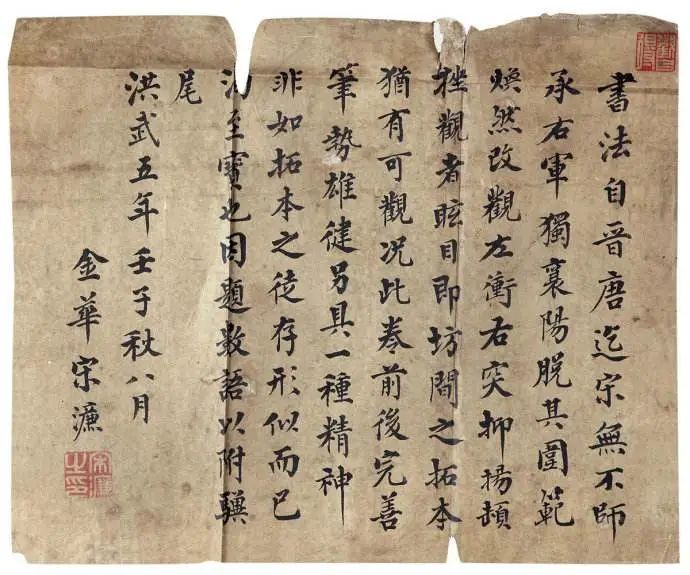 書法自晋唐迄宋無不師
承右軍獨襄陽脫其圍範
煥然改觀左衝右突抑揚頓
挫觀者眩目即坊間之拓本
猶有可觀况此卷前後完善
筆勢雄健另具一種精神
非如拓本之徒存形似而已
洵至寶也因題數語以附驥
尾
洪武五年壬子秋八月
金華宋濂
宋濂之印